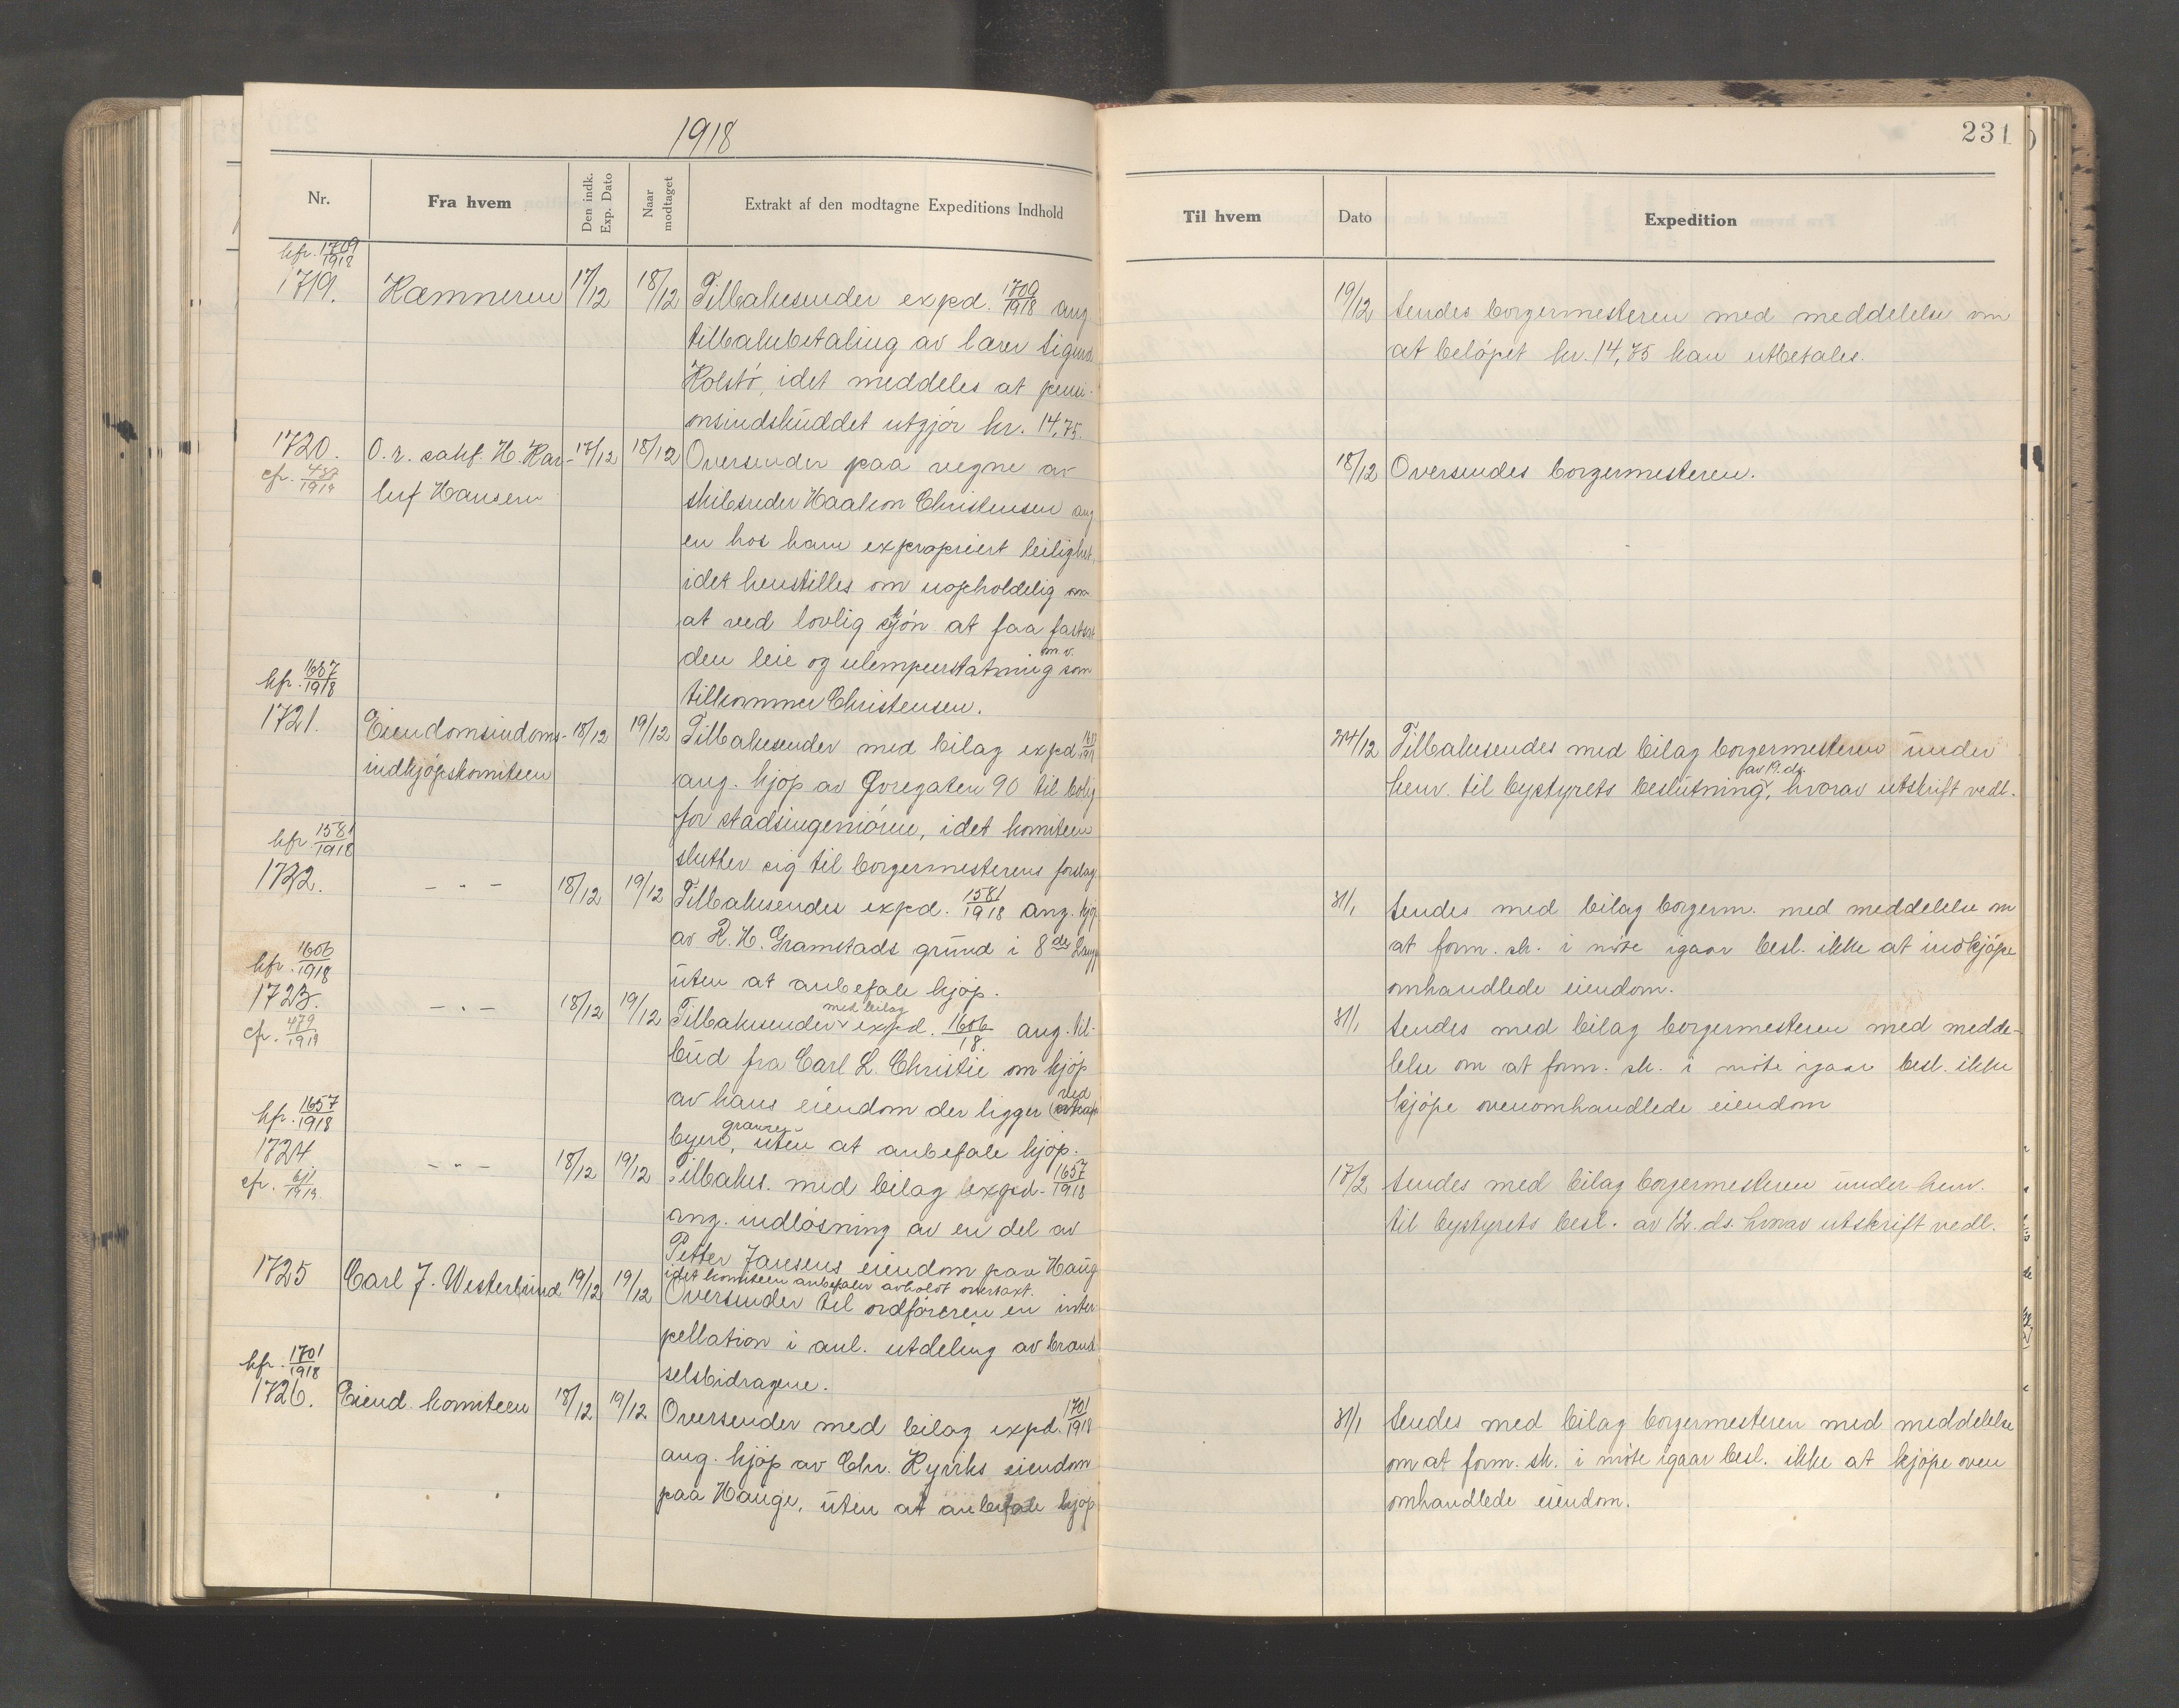 1918
Nr.
Fra hvem
Den indk. Exp. Dato
Naar modtaget
Extrakt af den modtagne Expeditions Indhold
kfr. 1709/1918
1719.
Kæmneren
17/12
18/12
Tilbakesender expd. 1709/1918 ang
tilbakebetaling av lærer Sigurd
Holstö, idet meddeles at pensi-
onsindskuddet utgjör kr. 14,75.
1720.
cfr.
O.r. sakf. H. Kar-
luf Hansen
17/12
18/12
Oversender paa vegne av
skibsreder Haakon Christensen ang
en hos ham expropriert leilighet,
idet henstilles om uopholdelig om
at ved lovlig skjön at faa fastsat
den leie og ulempeerstatning m.v. som
tilkommer Christensen.
kfr. 1687/1918
1721.
Eiendomsindoms-
indkjöpskomiteen
18/12
19/12
Tilbakesender med bilag expd.
ang. kjöp av Øvregaten 90 til bolig
for stadsingeniören, idet komiteen
slutter sig til borgermesterens forslag
kfr. 1581/1918
1722.
- " -
18/12
19/12
Tilbakesender expd. 1581/1918 ang. kjöp
av R. H. Gramstads grund i 8de
uten at anbefale kjöp.
kfr. 1606/1918
1723.
cfr. 479/1919
- " -
18/12
19/12
Tilbakesender med bilag expd. 1606/18 ang. til-
bud fra Carl L. Christie om kjöp
av hans eiendom der ligger ved
byens grænse, uten at anbefale kjöp.
kfr. 1657/1918
1724
cfr. 611/1919.
- " -
18/12
19/12
Tilbakes. med bilag expd. 1657/1918
ang. indlösning av en del av
Petter Jansens eiendom paa Haug
idet komiteen anbefaler avholdt overtaxt.
1725
Carl J. Westerlund
19/12
19/12
Oversender til ordföreren en inter-
pellation i anl. utdeling av brænd-
selsbidragene.
kfr. 1701/1918
1726.
Eiend. komiteen
18/12
19/12
Oversender med bilag expd. 1701/1918
ang. kjöp av Chr. Kyrrhs eiendom
paa Hauge, uten at anbefale kjöp
231
Til hvem
Dato
Expedition
19/12
Sendes borgermesteren med meddelelse om
at belöpet kr. 14,75 kan utbetales.
18/12
Oversendes borgermesteren.
24/12
Tilbakesendes med bilag borgermesteren under
henv. til bystyrets beslutning av 19. ds., hvorav utskrift vedl.
31/1
Sendes med bilag borgerm. med meddelelse om
at form. sk. i möte igaar besl. ikke at indkjöpe
omhandlede eiendom.
31/1
Sendes med bilag borgermesteren med medde-
lelse om at form. sk. i möte igaar besl. ikke
kjöpe ovenomhandlede eiendom
17/2
Sendes med bilag borgermesteren under henv.
til bystyrets besl. av 12. ds. hvorav utskrift vedl.
31/1
Sendes med bilag borgermesteren med meddelelse
om at form. sk. i möte igaar besl. ikke at kjöpe oven
omhandlede eiendom.